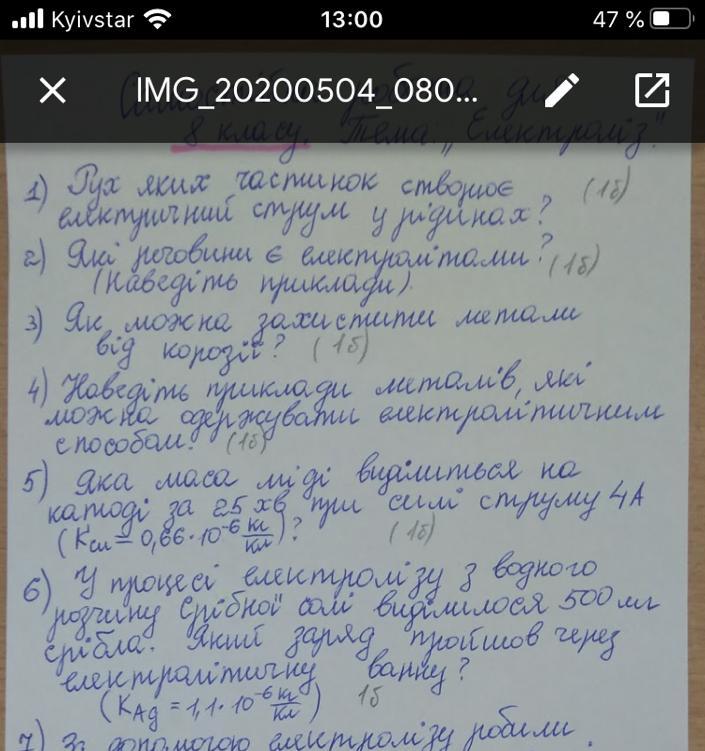 Kyivstar 13:00 47 %
IMG_20200504_080...
8 класу. Тема: „Електроліз"
1) Рух яких частинок створює (1б)
електричний струм у рідинах?
2) Які речовини є електролітами? (1б)
(Наведіть приклади).
3) Як можна захистити метали
від корозії? (1б)
4) Наведіть приклади металів, які
можна одержувати електролітичним
способом. (1б)
5) Яка маса міді виділиться на
катоді за 25 хв при силі струму 4А
(Kсu = 0,66·10⁻⁶ кг/Кл)? (1б)
6) У процесі електролізу з водного
розчину срібної солі виділилося 500 мг
срібла. Який заряд пройшов через
електролітичну ванну?
(KAg = 1,1·10⁻⁶ кг/Кл) 1б
7) За допомогою електролізу робили